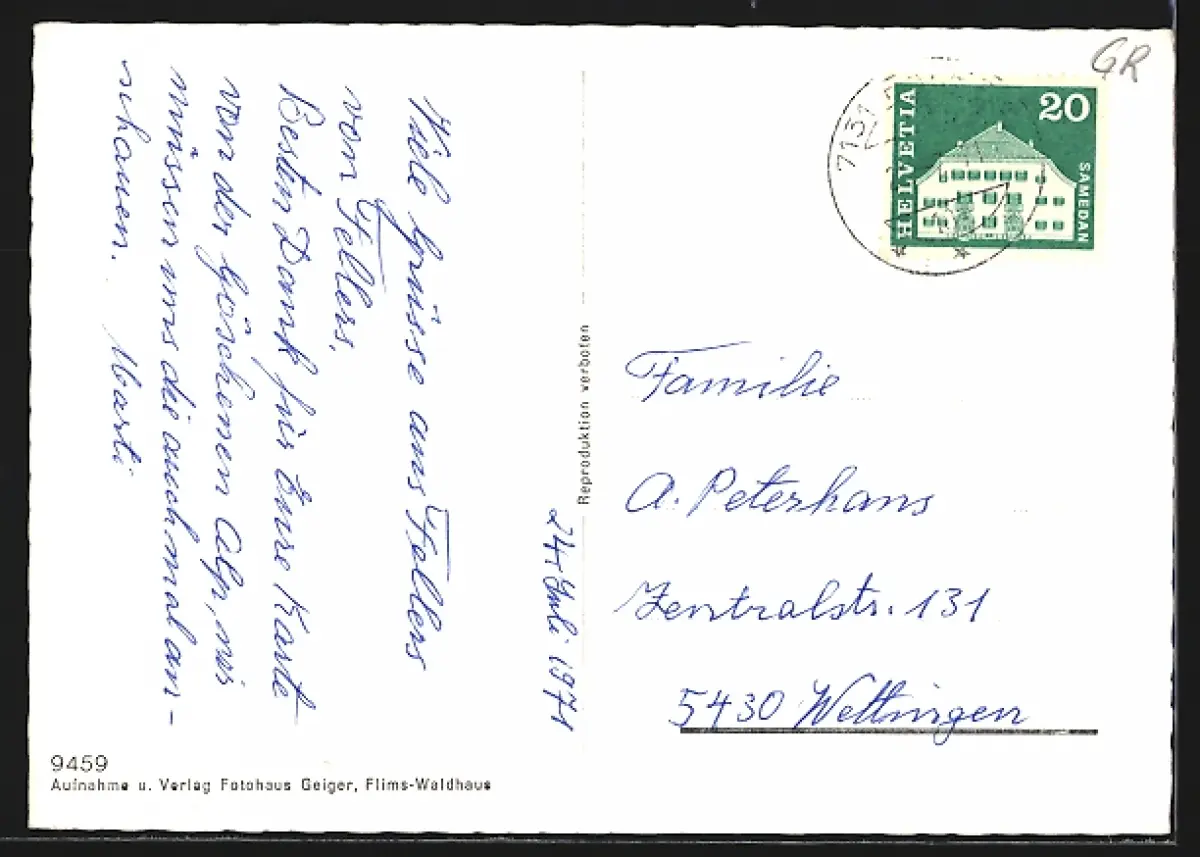 24. Juli 1971
Viele Grüsse aus Fellers
von Fellers,
Besten Dank für Eure Karte
von der Göschenen Alp, wir
müssen uns die auch mal an-
schauen. Marti
9459
Aufnahme u. Verlag Fotohaus Geiger, Flims-Waldhaus
Reproduktion verboten
GR
7151
HELVETIA
20
SAMEDAN
Familie
A. Peterhans
Zentralstr. 131
5430 Wettingen